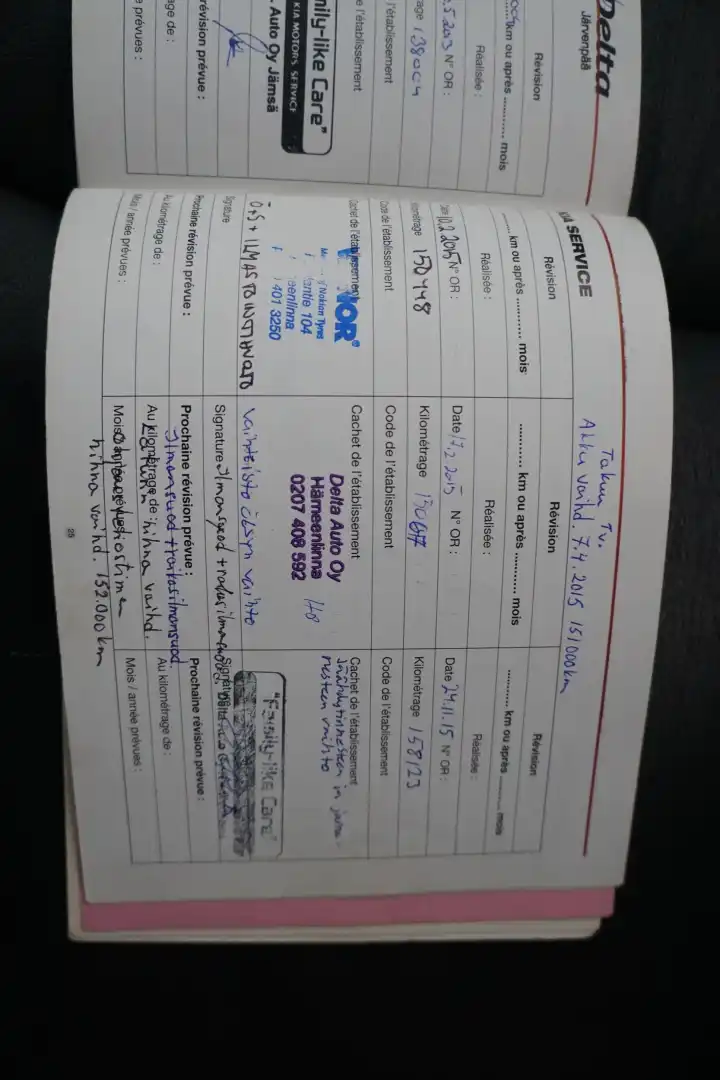 Delta
Järvenpää
Révision
km ou après ............ mois
Réalisée :
N° OR :
138004
l'établissement
e l'établissement
mily-like Care"
KIA MOTORS SERVICE
Auto Oy Jämsä
révision prévue :
age de :
e prévues :
KIA SERVICE
Takuu Tv.
Akku vaihd. 7.4.2015 151000km
Révision
........ km ou après ............ mois
Réalisée :
Date 10.2.2015 N° OR :
Kilométrage 150448
Code de l'établissement
Cachet de l'établissement
NOR®
Nokian Tyres
antie 104
eenlinna
401 3250
Ö+S + ILMASTOINTIHUOLTO
Signature
Prochaine révision prévue :
Au kilométrage de :
Mois / année prévues :
Révision
............ km ou après ............ mois
Réalisée :
Date 17.2.2015 N° OR :
Kilométrage
Code de l'établissement
Cachet de l'établissement
Delta Auto Oy
Hämeenlinna
0207 408 592
vaihteisto öljyn vaihto
Signature Ilmansuod +
Prochaine révision prévue :
Ilmansuod + raitisilmansuod.
Au kilométrage de : hihna vaihd.
Mois / année prévues :
hihna vaihd. 152.000km
Révision
............ km ou après ............ mois
Réalisée :
Date 24.11.15 N° OR :
Kilométrage 158123
Code de l'établissement
Cachet de l'établissement
jäähdytinnesteen ja jarru-
nesteen vaihto
"Family-like Care"
Signature
Prochaine révision prévue :
Au kilométrage de :
Mois / année prévues :
25